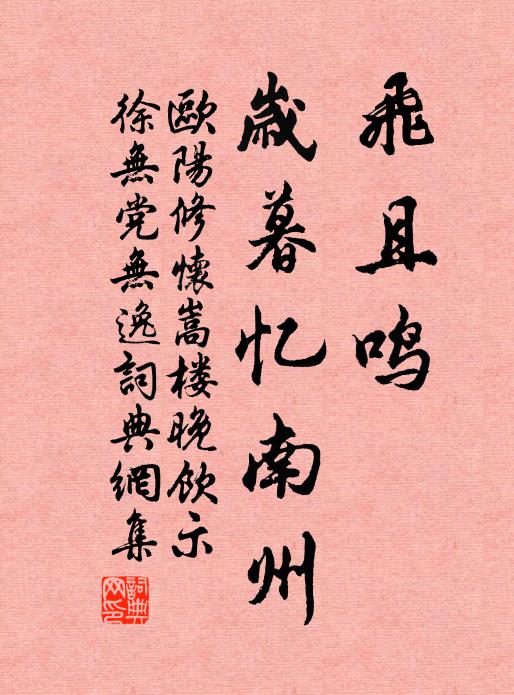 飛且鸣
歲暮忆南州
歐陽修懷嵩楼晚飲示
徐無党無逸詞典網集
詞典网印